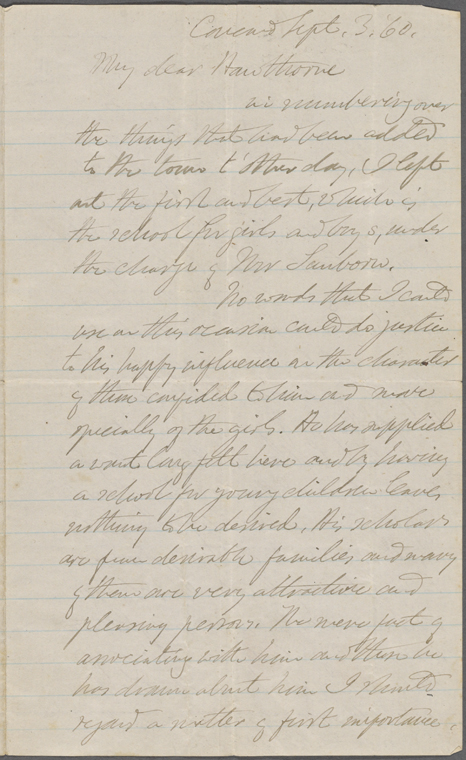 Concord Sept. 3. 60.
My dear Hawthorne
in numbering over
the things that had been added
to the town t'other day, I left
out the first and best, which is
the school for girls and boys, under
the charge of Mr Sanborn.
No words that I could
use on this occasion could do justice
to his happy influence on the character
of them confided to him and more
specially of the girls. He has supplied
a want long felt here and by having
a school for young children leaves
nothing to be desired. His scholars
are from desirable families and many
of them are very attractive and
pleasing persons. The mere fact of
associating with him and those he
has drawn about him I should
regard a matter of first importance.